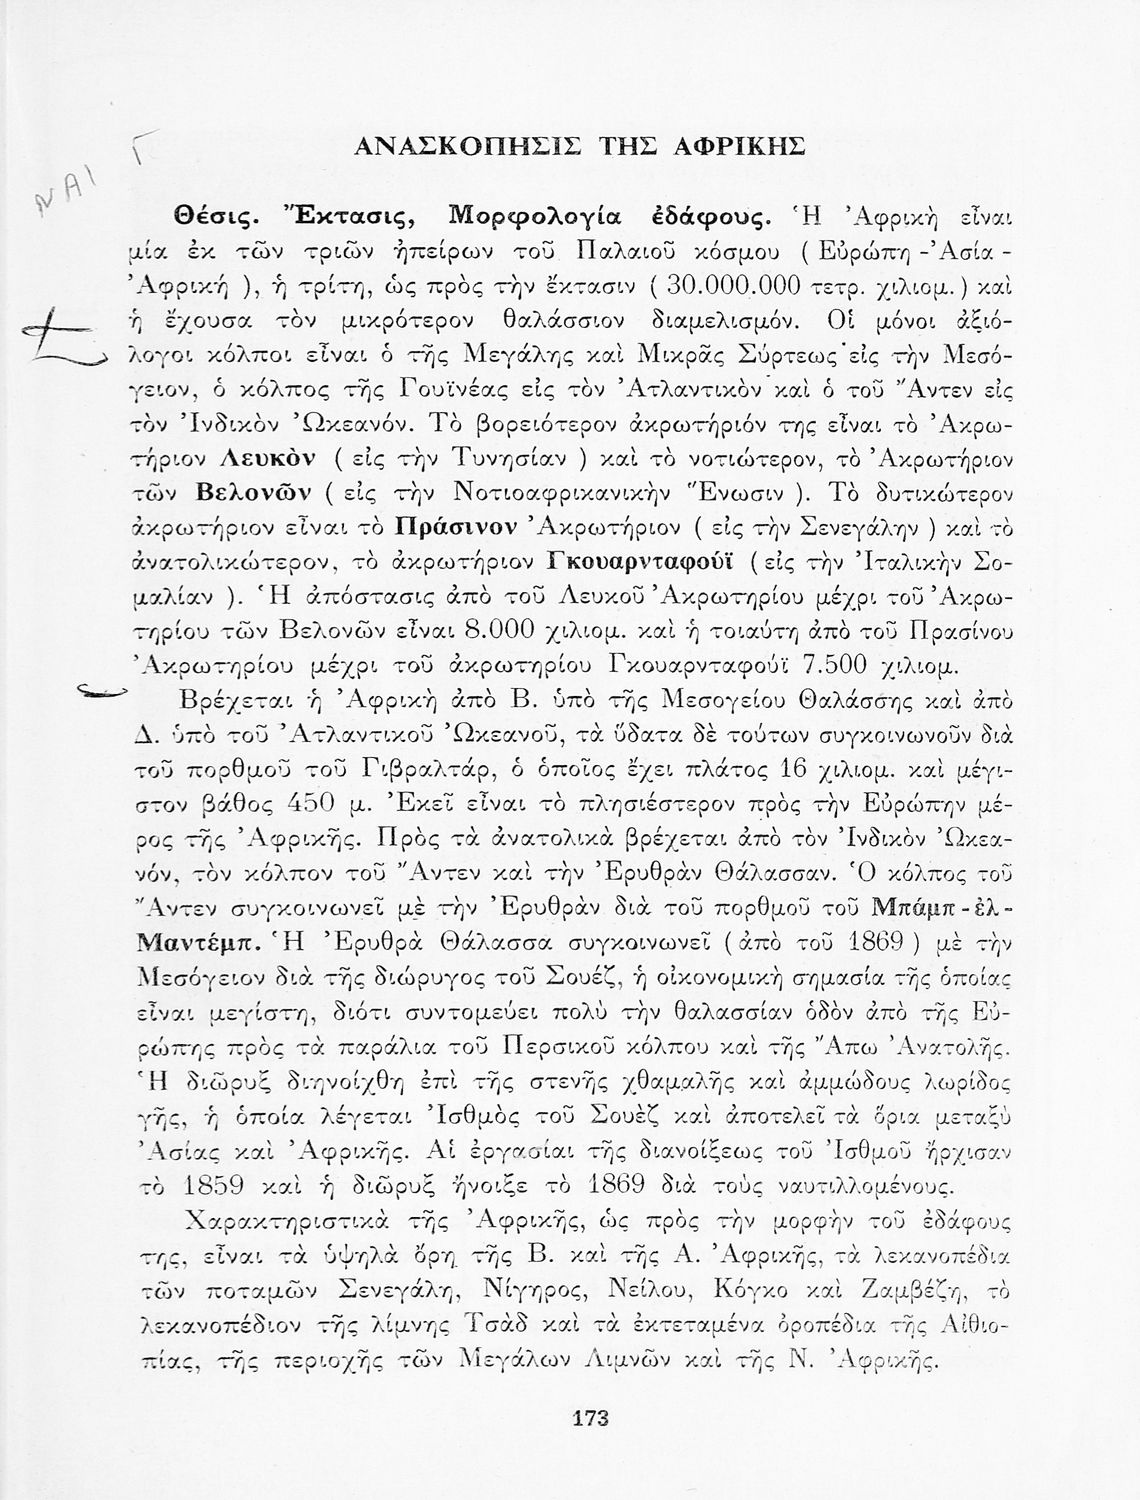 ΑΝΑΣΚΟΠΗΣΙΣ ΤΗΣ ΑΦΡΙΚΗΣ
ΝΑΙ Γ
Θέσις. Ἔκτασις, Μορφολογία ἐδάφους. Ἡ Ἀφρικὴ εἶναι
μία ἐκ τῶν τριῶν ἠπείρων τοῦ Παλαιοῦ κόσμου ( Εὐρώπη - Ἀσία -
Ἀφρική ), ἡ τρίτη, ὡς πρὸς τὴν ἔκτασιν ( 30.000.000 τετρ. χιλιομ. ) καὶ
ἡ ἔχουσα τὸν μικρότερον θαλάσσιον διαμελισμόν. Οἱ μόνοι ἀξιό-
λογοι κόλποι εἶναι ὁ τῆς Μεγάλης καὶ Μικρᾶς Σύρτεως εἰς τὴν Μεσό-
γειον, ὁ κόλπος τῆς Γουϊνέας εἰς τὸν Ἀτλαντικὸν καὶ ὁ τοῦ Ἄντεν εἰς
τὸν Ἰνδικὸν Ὠκεανόν. Τὸ βορειότερον ἀκρωτήριόν της εἶναι τὸ Ἀκρω-
τήριον Λευκὸν ( εἰς τὴν Τυνησίαν ) καὶ τὸ νοτιώτερον, τὸ Ἀκρωτήριον
τῶν Βελονῶν ( εἰς τὴν Νοτιοαφρικανικὴν Ἕνωσιν ). Τὸ δυτικώτερον
ἀκρωτήριον εἶναι τὸ Πράσινον Ἀκρωτήριον ( εἰς τὴν Σενεγάλην ) καὶ τὸ
ἀνατολικώτερον, τὸ ἀκρωτήριον Γκουαρνταφούϊ ( εἰς τὴν Ἰταλικὴν Σο-
μαλίαν ). Ἡ ἀπόστασις ἀπὸ τοῦ Λευκοῦ Ἀκρωτηρίου μέχρι τοῦ Ἀκρω-
τηρίου τῶν Βελονῶν εἶναι 8.000 χιλιομ. καὶ ἡ τοιαύτη ἀπὸ τοῦ Πρασίνου
Ἀκρωτηρίου μέχρι τοῦ ἀκρωτηρίου Γκουαρνταφούϊ 7.500 χιλιομ.
Βρέχεται ἡ Ἀφρικὴ ἀπὸ Β. ὑπὸ τῆς Μεσογείου Θαλάσσης καὶ ἀπὸ
Δ. ὑπὸ τοῦ Ἀτλαντικοῦ Ὠκεανοῦ, τὰ ὕδατα δὲ τούτων συγκοινωνοῦν διὰ
τοῦ πορθμοῦ τοῦ Γιβραλτάρ, ὁ ὁποῖος ἔχει πλάτος 16 χιλιομ. καὶ μέγι-
στον βάθος 450 μ. Ἐκεῖ εἶναι τὸ πλησιέστερον πρὸς τὴν Εὐρώπην μέ-
ρος τῆς Ἀφρικῆς. Πρὸς τὰ ἀνατολικὰ βρέχεται ἀπὸ τὸν Ἰνδικὸν Ὠκεα-
νόν, τὸν κόλπον τοῦ Ἄντεν καὶ τὴν Ἐρυθρὰν Θάλασσαν. Ὁ κόλπος τοῦ
Ἄντεν συγκοινωνεῖ μὲ τὴν Ἐρυθρὰν διὰ τοῦ πορθμοῦ τοῦ Μπάμπ - ἐλ -
Μαντέμπ. Ἡ Ἐρυθρὰ Θάλασσα συγκοινωνεῖ ( ἀπὸ τοῦ 1869 ) μὲ τὴν
Μεσόγειον διὰ τῆς διώρυγος τοῦ Σουέζ, ἡ οἰκονομικὴ σημασία τῆς ὁποίας
εἶναι μεγίστη, διότι συντομεύει πολὺ τὴν θαλασσίαν ὁδὸν ἀπὸ τῆς Εὐ-
ρώπης πρὸς τὰ παράλια τοῦ Περσικοῦ κόλπου καὶ τῆς Ἄπω Ἀνατολῆς.
Ἡ διῶρυξ διηνοίχθη ἐπὶ τῆς στενῆς χθαμαλῆς καὶ ἀμμώδους λωρίδος
γῆς, ἡ ὁποία λέγεται Ἰσθμὸς τοῦ Σουὲζ καὶ ἀποτελεῖ τὰ ὅρια μεταξὺ
Ἀσίας καὶ Ἀφρικῆς. Αἱ ἐργασίαι τῆς διανοίξεως τοῦ Ἰσθμοῦ ἤρχισαν
τὸ 1859 καὶ ἡ διῶρυξ ἤνοιξε τὸ 1869 διὰ τοὺς ναυτιλλομένους.
Χαρακτηριστικὰ τῆς Ἀφρικῆς, ὡς πρὸς τὴν μορφὴν τοῦ ἐδάφους
της, εἶναι τὰ ὑψηλὰ ὄρη τῆς Β. καὶ τῆς Α. Ἀφρικῆς, τὰ λεκανοπέδια
τῶν ποταμῶν Σενεγάλη, Νίγηρος, Νείλου, Κόγκο καὶ Ζαμβέζη, τὸ
λεκανοπέδιον τῆς λίμνης Τσὰδ καὶ τὰ ἐκτεταμένα ὀροπέδια τῆς Αἰθιο-
πίας, τῆς περιοχῆς τῶν Μεγάλων Λιμνῶν καὶ τῆς Ν. Ἀφρικῆς.
173